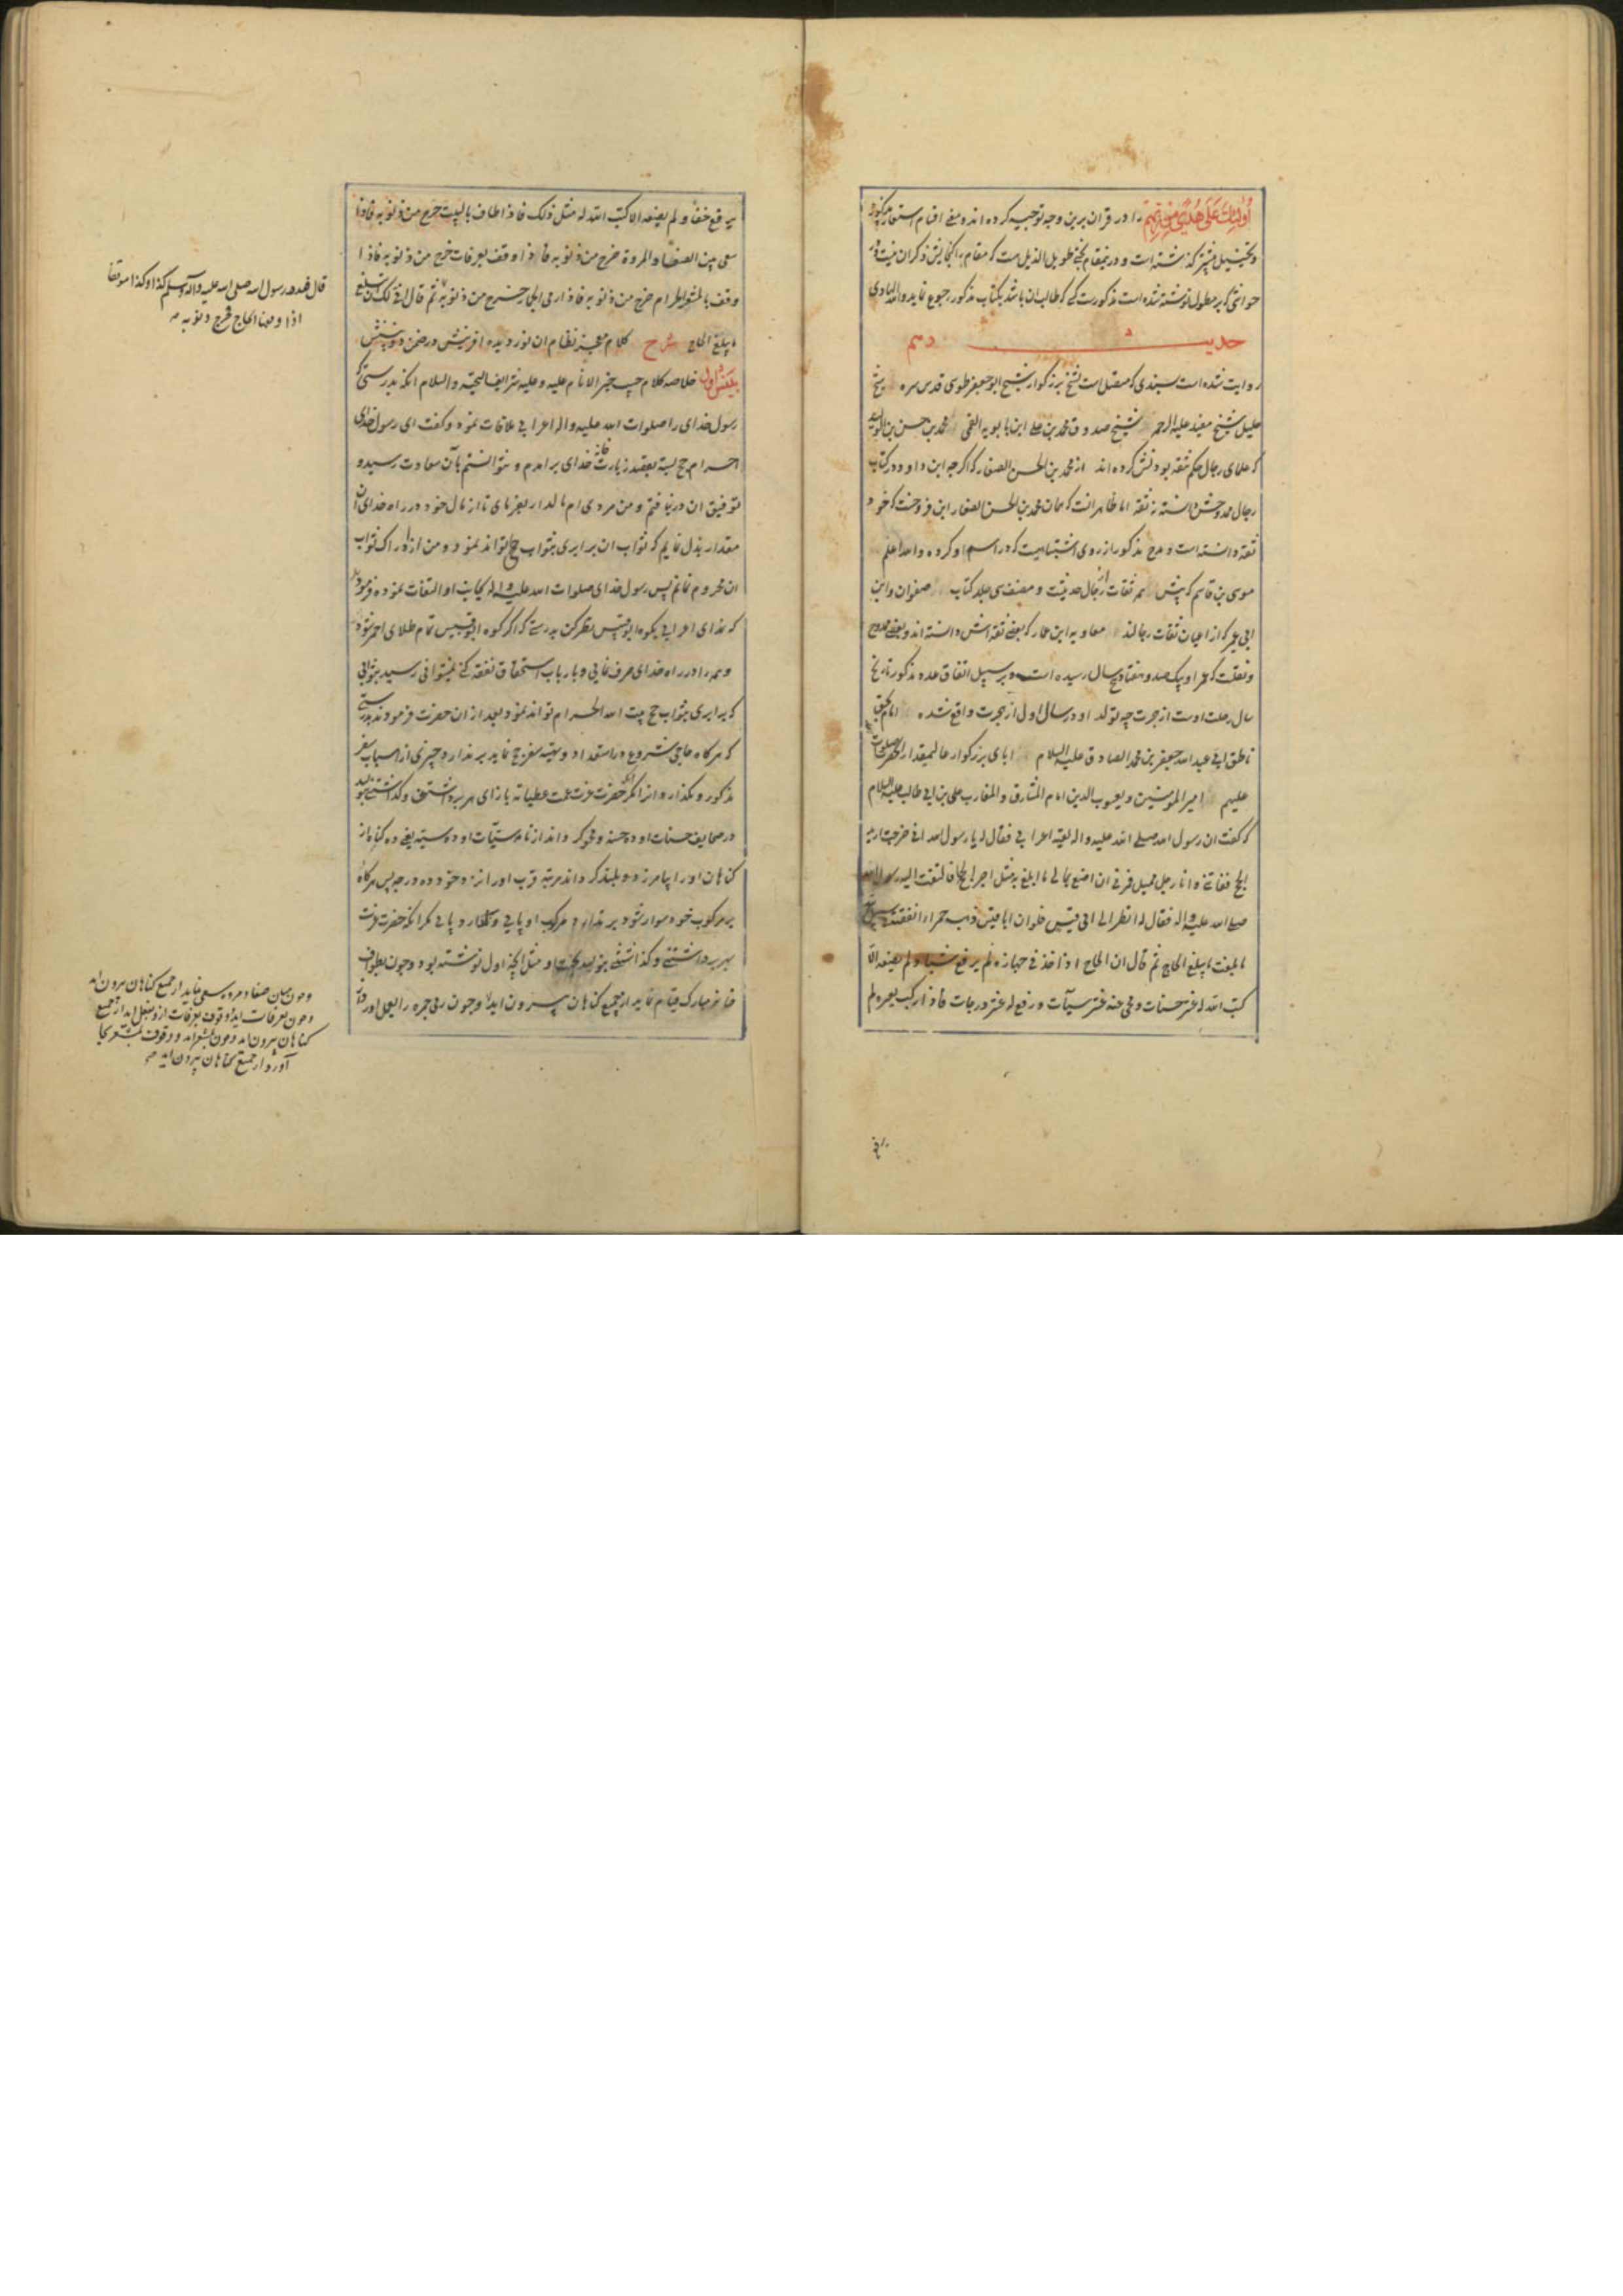 أُولٰئِكَ عَلَى هُدًى مِنْ رَبِّهِمْ را در قران برین وجه توجیه کرده اند و معنی اقسام استعاره مذکور
و تخییل پیشتر گذشته است و درینمقام بحثی طویل الذیل هست که مقام را گنجایش ذکر ان نیست و در
حواشی که بر مطول نوشته شده است مذکورست کسی که طالب ان باشد بکتاب مذکور رجوع نماید والله الهادی
حدیث دهم
روایت شده است بسندی که متصل است بشیخ بزرگوار شیخ ابو جعفر طوسی قدس سره شیخ
جلیل شیخ مفید علیه الرحمه شیخ صدوق محمد بن علی ابن بابویه القمی محمد بن حسن بن الولید
که علمای رجال حکم بثقه بودنش کرده اند از محمد بن الحسن الصفار که اگرچه ابن داود در کتاب
رجال ممدوحش دانسته نه ثقه اما ظاهر انست که همان محمد بن الحسن الصفار ابن فروخست که خود
ثقه دانسته است و مدح مذکور از روی اشتباهیست که در اسم او کرده والله اعلم
موسی بن قاسم که پیش همه ثقات از رجال حدیثست و مصنف سی جلد کتاب صفوان و ابن
ابی عمیر که از اعیان ثقات رجالند معاویه ابن عمار که بعضی ثقه اش دانسته اند و بعضی ممدوح
و نقلست که عمر او بیک صد و هفتاد و پنج سال رسیده است و بر سبیل اتفاق عدد مذکور تاریخ
سال رحلت اوست از هجرت چه تولد او در سال اول از هجرت واقع شده امام بحق
ناطق ابی عبدالله جعفر بن محمد الصادق علیه السلام ابای بزرگوار عالیمقدار انحضرت صلوات الله
علیهم امیر المومنین و یعسوب الدین امام المشارق و المغارب علی بن ابی طالب علیه السلام
که گفت ان رسول الله صلی الله علیه واله لقیه اعرابی فقال له یا رسول الله انی خرجت ارید
الحج ففاتنی و انا رجل ممیل فمرنی ان اصنع بمالی ما ابلغ به مثل اجر الحاج فالتفت الیه رسول الله
صلی الله علیه واله فقال له انظر الی ابی قبیس فلو ان ابا قبیس ذهبه حمراء انفقته فی سبیل الله
ما بلغت ما یبلغ الحاج ثم قال ان الحاج اذا اخذ فی جهازه لم یرفع شیئا ولم یضعه الا
کتب الله له عشر حسنات و محی عنه عشر سیئات و رفع له عشر درجات فاذا رکب بعیره لم
یرفع خفا ولم یضعه الا کتب الله له مثل ذلک فاذا طاف بالبیت خرج من ذنوبه فاذا
سعی بین الصفا والمروة خرج من ذنوبه فاذا وقف بعرفات خرج من ذنوبه فاذا
وقف بالمشعر الحرام خرج من ذنوبه فاذا رمی الجمار خرج من ذنوبه ثم قال انی لک ان تبلغ
ما یبلغ الحاج شرح کلام معجز نظام ان نور دیده افرینش در ضمن دو بینش
بینش اول خلاصه کلام حبیب خیر الانام علیه و علیه شرایف التحیه والسلام انکه بدرستی که
رسول خدای را صلوات الله علیه واله اعرابی ملاقات نمود و گفت ای رسول خدای
احرام حج بسته بقصد زیارت خانه خدای بر امدم و نتوانستم بآن سعادت رسید و
توفیق ان در نیافتم و من مردی ام مالدار بفرمای تا از مال خود در راه خدای ان
مقدار بذل نمایم که ثواب ان برابری بثواب حج تواند نمود و من از ادراک ثواب
ان محروم نمانم پس رسول خدای صلوات الله علیه واله بجانب او التفات نموده فرمود
که ندای اعرابی بکوه ابو قبیس نظر کن بدرستی که اگر کوه ابو قبیس تمام طلای احمر شود
و همه را در راه خدای صرف نمایی و بارباب استحقاق نفقه کنی نمیتوانی رسید بثوابی
که برابری بثواب حج بیت الله الحرام تواند نمود و بعد از ان حضرت فرمودند بدرستی
که هرگاه حاجی شروع در استعداد و تهیه سفر حج نماید بر ندارد چیزی از اسباب سفر
مذکور و نگذارد انرا مگر انکه حضرت عزت عمت عطیاته بازای هر برداشتن و گذاشتنی بنویسد
در صحایف حسنات او ده حسنه و محو گرداند از نامه سیئات او ده سیئه یعنی ده گناه از
گناهان او را بیامرزد و بلند گرداند مرتبه قرب او را نزد خود ده درجه پس هرگاه
بر مرکوب خود سوار شود بر ندارد مرکب او پایی و نگذارد پایی مگر انکه حضرت عزت
بهر برداشتنی و گذاشتنی بنویسد بجهت او مثل انچه اول نوشته بود و چون بطواف
خانه مبارک قیام نماید از جمیع گناهان بیرون اید و چون رمی جمره را بعمل اورد از
قال فعدد رسول الله صلی الله علیه واله وسلم کذا و کذا موقفا
اذا وقفها الحاج خرج من ذنوبه
و چون میان صفا و مروه سعی نماید از جمیع گناهان بیرون اید
و چون بعرفات اید و وقوف بعرفات ازو بفعل اید از جمیع
گناهان بیرون اید و چون بمشعر اید و وقوف بمشعر بجا
آورد از جمیع گناهان بیرون اید